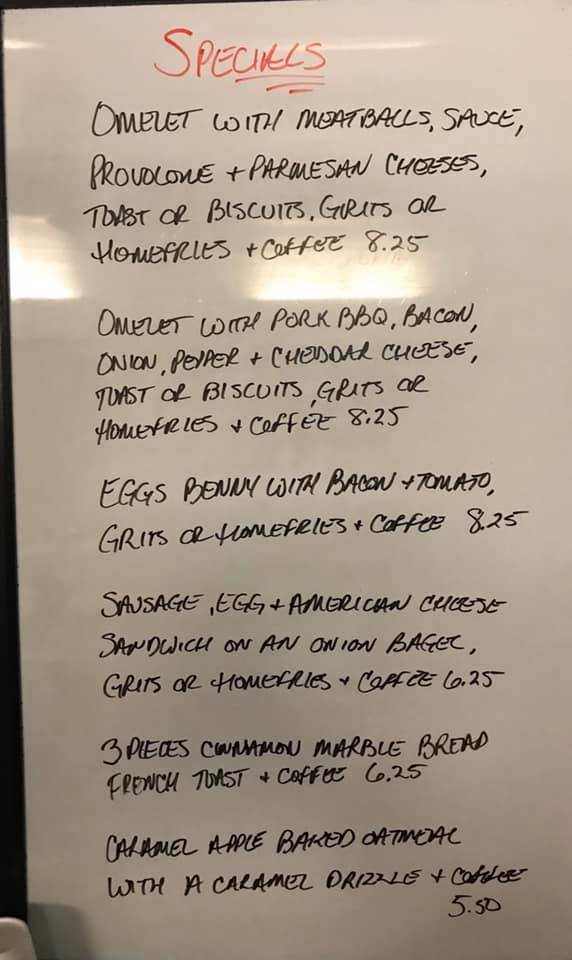 SPECIALS
OMELET WITH MEATBALLS, SAUCE,
PROVOLONE + PARMESAN CHEESES,
TOAST OR BISCUITS, GRITS OR
HOMEFRIES + COFFEE 8.25
OMELET WITH PORK BBQ, BACON,
ONION, PEPPER + CHEDDAR CHEESE,
TOAST OR BISCUITS, GRITS OR
HOMEFRIES + COFFEE 8.25
EGGS BENNY WITH BACON + TOMATO,
GRITS OR HOMEFRIES + COFFEE 8.25
SAUSAGE, EGG + AMERICAN CHEESE
SANDWICH ON AN ONION BAGEL,
GRITS OR HOMEFRIES + COFFEE 6.25
3 PIECES CINNAMON MARBLE BREAD
FRENCH TOAST + COFFEE 6.25
CARAMEL APPLE BAKED OATMEAL
WITH A CARAMEL DRIZZLE + COFFEE
5.50